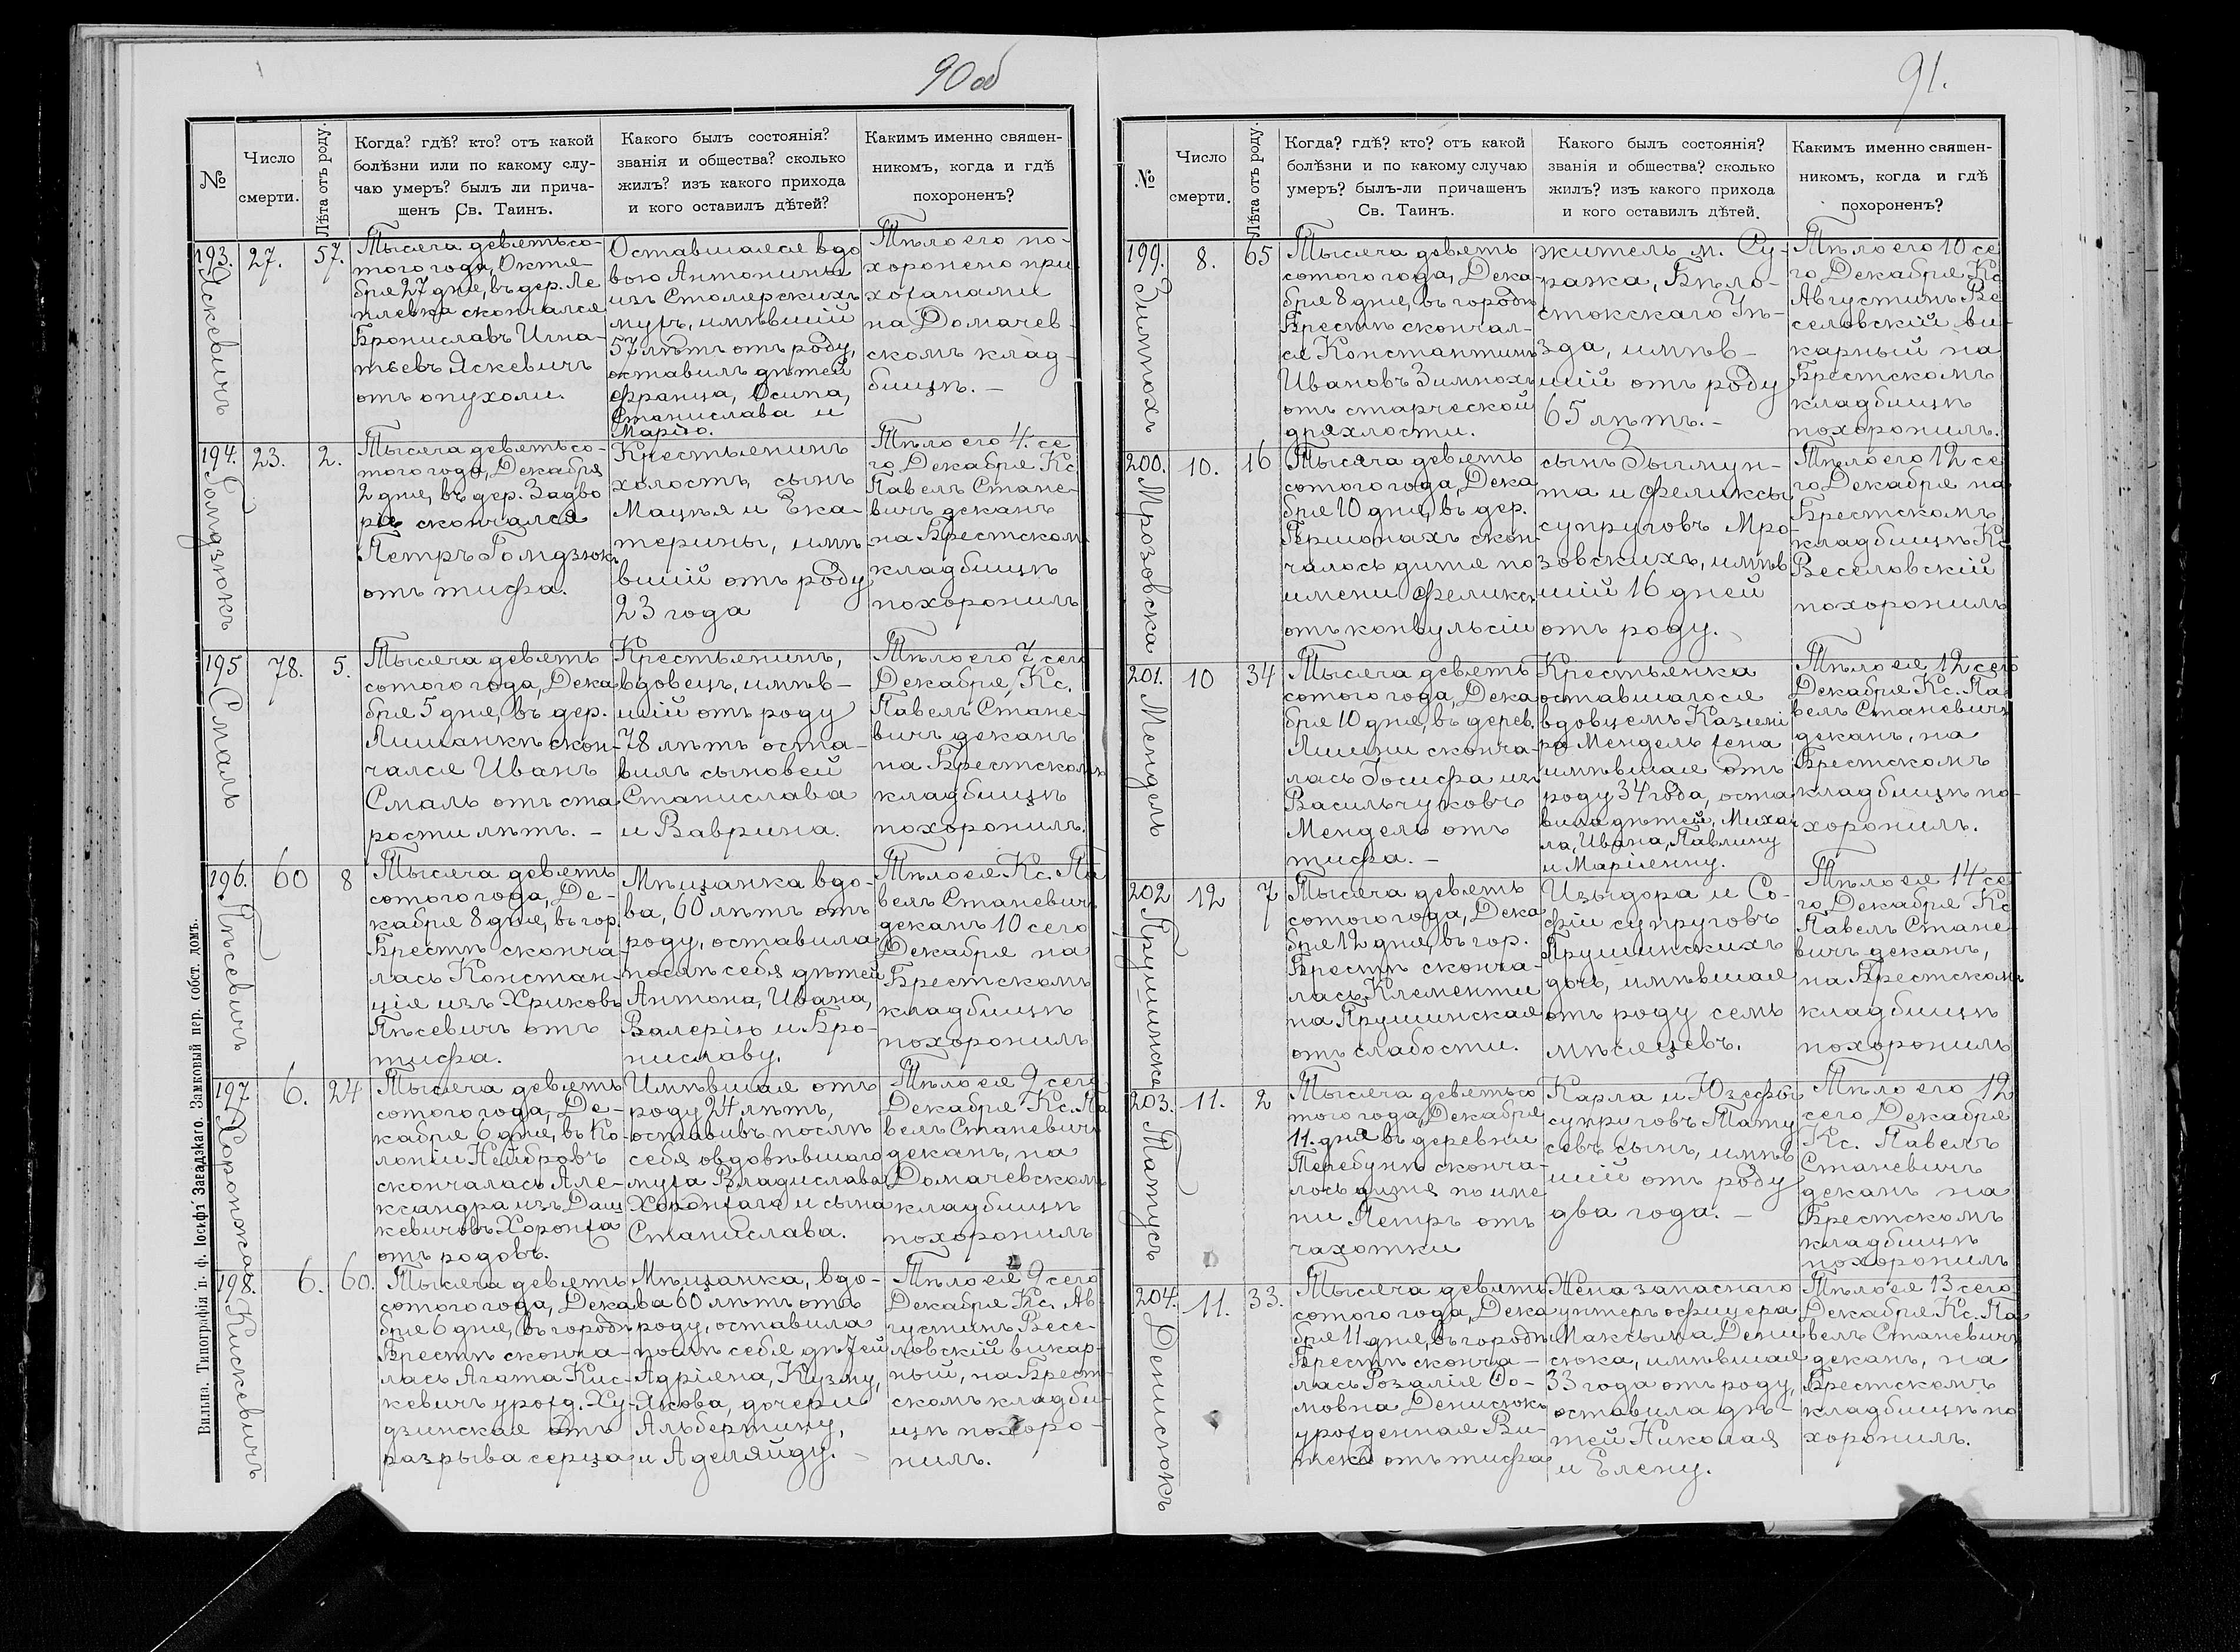 90 об
№
Число
смерти.
Лѣта отъ роду.
Когда? гдѣ? кто? отъ какой
болѣзни или по какому слу-
чаю умеръ? былъ ли прича-
щенъ Св. Таинъ.
Какого былъ состоянія?
званія и общества? сколько
жилъ? изъ какого прихода
и кого оставилъ дѣтей?
Какимъ именно священ-
никомъ, когда и гдѣ
похороненъ?
193.
Яскевичъ
27.
57.
Тысяча девятьсо-
того года, Октя-
бря 27 дня, въ дер. Ле
плевка скончался
Брониславъ Игна-
тьевъ Яскевичъ
отъ опухоли
Оставшаяся вдо
вою Антонины
изъ Столярскихъ
мужъ, имѣвшій
57 лѣтъ отъ роду,
оставилъ дѣтей
Франца, Осипа,
Станислава и
Марію.
Тѣло его по-
хоронено при
хожанами
на Домачев-
скомъ клад-
бищѣ. -
194.
Гомдзюкъ
23.
2.
Тысяча девятьсо-
того года, Декабря
2 дня, въ дер. Задво
рцѣ скончался
Петръ Гомдзюкъ
отъ тифа.
Крестьянинъ
холостъ, сынъ
Мацѣя и Ека-
терины, имѣ
вшій отъ роду
23 года
Тѣло его 4. се
го Декабря Кс.
Павелъ Стане-
вичъ деканъ
на Брестском
кладбищѣ
похоронилъ
195
Смаль
78.
5.
Тысяча девять
сотого года, Дека
бря 5 дня, въ дер.
Лишанкѣ скон-
чался Иванъ
Смаль отъ ста
рости лѣтъ. -
Крестьянинъ,
вдовецъ, имѣв-
шій отъ роду
78 лѣтъ оста-
вилъ сыновей
Станислава
и Ваврина.
Тѣло его 7 сего
Декабря, Кс.
Павелъ Стане-
вичъ деканъ
на Брестскомъ
кладбищѣ
похоронилъ.
196.
Пѣсевичъ
60
8
Тысяча девять
сотого года, Де-
кабря 8 дня, въ гор.
Брестѣ сконча-
лась Констан-
ція изъ Хриковъ
Пѣсевичъ отъ
тифа.
Мѣщанка вдо-
ва, 60 лѣтъ отъ
роду, оставила
послѣ себя дѣтей
Антона, Ивана,
Валерію и Бро-
ниславу.
Тѣло ея Кс. Па
велъ Станевич
деканъ 10 сего
Декабря на
Брестскомъ
кладбищѣ
похоронилъ
197
Хоронжая
6.
24
Тысяча девять
сотого года, Де-
кабря 6 дня, въ Ко-
лоніи Нейбровъ
скончалась Але-
ксандра изъ Даш
кевичовъ Хоронжа
отъ родовъ.
Имѣвшая отъ
роду 24 лѣтъ,
оставивъ послѣ
себя овдовѣвшаго
мужа Владислава
Хоронжаго и сына
Станислава.
Тѣло ея 9 сего
Декабря Кс. Па
велъ Станевичъ
деканъ, на
Домачевском
кладбищѣ
похоронилъ
198.
Кискевичъ
6.
60.
Тысяча девять
сотого года, Дека
бря 6 дня, въ городѣ
Брестѣ сконча-
лась Агата Кис-
кевичъ урожд. Ху-
дзинская отъ
разрыва серца
Мѣщанка, вдо-
ва 60 лѣтъ отъ
роду, оставила
послѣ себя дѣтей
Адріяна, Кузму,
Якова, дочери
Альбертину,
и Аделяйду. -
Тѣло ея 9 сего
Декабря Кс. Ав-
густинъ Весе-
ловскій викар-
ный, на Брест-
скомъ кладби-
щѣ похоро-
нилъ.
Вильна. Типографія п. ф. Іосифъ Завадзкаго. Замковый пер. собст. домъ.
91.
№
Число
смерти.
Лѣта отъ роду.
Когда? гдѣ? кто? отъ какой
болѣзни и по какому случаю
умеръ? былъ-ли причащенъ
Св. Таинъ.
Какого былъ состоянія?
званія и общества? сколько
жилъ? изъ какого прихода
и кого оставилъ дѣтей.
Какимъ именно священ-
никомъ, когда и гдѣ
похороненъ?
199.
Зимнохъ
8.
65
Тысяча девять
сотого года, Дека-
бря 8 дня, въ городѣ
Брестѣ скончал-
ся Константинъ
Ивановъ Зимнохъ
отъ старческой
дряхлости.
житель м. Су-
ража, Бѣло-
стокскаго Уѣ-
зда, имѣв-
шій отъ роду
65 лѣтъ. -
Тѣло его 10 се
го Декабря Кс
Августинъ Ве
селовскій ви-
карный на
Брестскомъ
кладбищѣ
похоронилъ.
200.
Мрозовска
10.
16
Тысяча девять
сотого года, Дека
бря 10 дня, въ дер.
Гершонахъ скон-
чалось дитя по
имени Феликсъ
отъ конвульсіи
сынъ Зыгмун-
та и Феликсы
супруговъ Мро-
зовскихъ, имѣв
шій 16 дней
отъ роду.
Тѣло его 12 се
го Декабря на
Брестскомъ
кладбищѣ Кс
Веселовскій
похоронилъ
201.
Мендель
10
34
Тысяча девять
сотого года, Дека
бря 10 дня, въ дерев.
Лищи сконча-
лась Іосифа изъ
Васильчуковъ
Мендель отъ
тифа. -
Крестьянка
оставшагося
вдовцемъ Казимі
ра Мендель жена
имѣвшая отъ
роду 34 года, оста
вила дѣтей, Михаи
ла, Ивана, Павлину
и Маріянну.
Тѣло ея 12 сего
Декабря Кс. Па
велъ Станевичъ
деканъ, на
Брестскомъ
кладбищѣ по-
хоронилъ.
202
Прушинска
12
7
Тысяча девять
сотого года, Дека
бря 12 дня, въ гор.
Брестѣ сконча-
лась Клементи
на Прушинская
отъ слабости.
Изыдора и Со-
фіи супруговъ
Прушинскихъ
дочь, имѣвшая
отъ роду семь
мѣсяцевъ.
Тѣло ея 14 се
го Декабря Кс
Павелъ Стане
вичъ деканъ,
на Брестскомъ
кладбищѣ
похоронилъ
203.
Матусъ
11.
2
Тысяча девятьсо
того года, Декабря
11. дня въ деревни
Теребунѣ сконча-
лось дитя по име
ни Петръ отъ
чахотки
Карла и Юзефы
супруговъ Мату
севъ сынъ, имѣв
шій отъ роду
два года. -
Тѣло его 12
сего Декабря
Кс. Павелъ
Станевичъ
деканъ на
Брестскомъ
кладбищѣ
похоронилъ
204.
Денисюкъ
11.
33.
Тысяча девять
сотого года, Дека
бря 11 дня, въ городѣ
Брестѣ сконча-
лась Розалія Ѳо-
мовна Денисюкъ
урожденная Ви-
отъ тифа
Жена запаснаго
унтеръ офицера
Максыма Дени
сюка, имѣвшая
33 года отъ роду,
оставила дѣ-
тей Николая
и Елену.
Тѣло ея 13 сего
Декабря Кс. Па
велъ Станевичъ
деканъ, на
Брестскомъ
кладбищѣ по
хоронилъ.